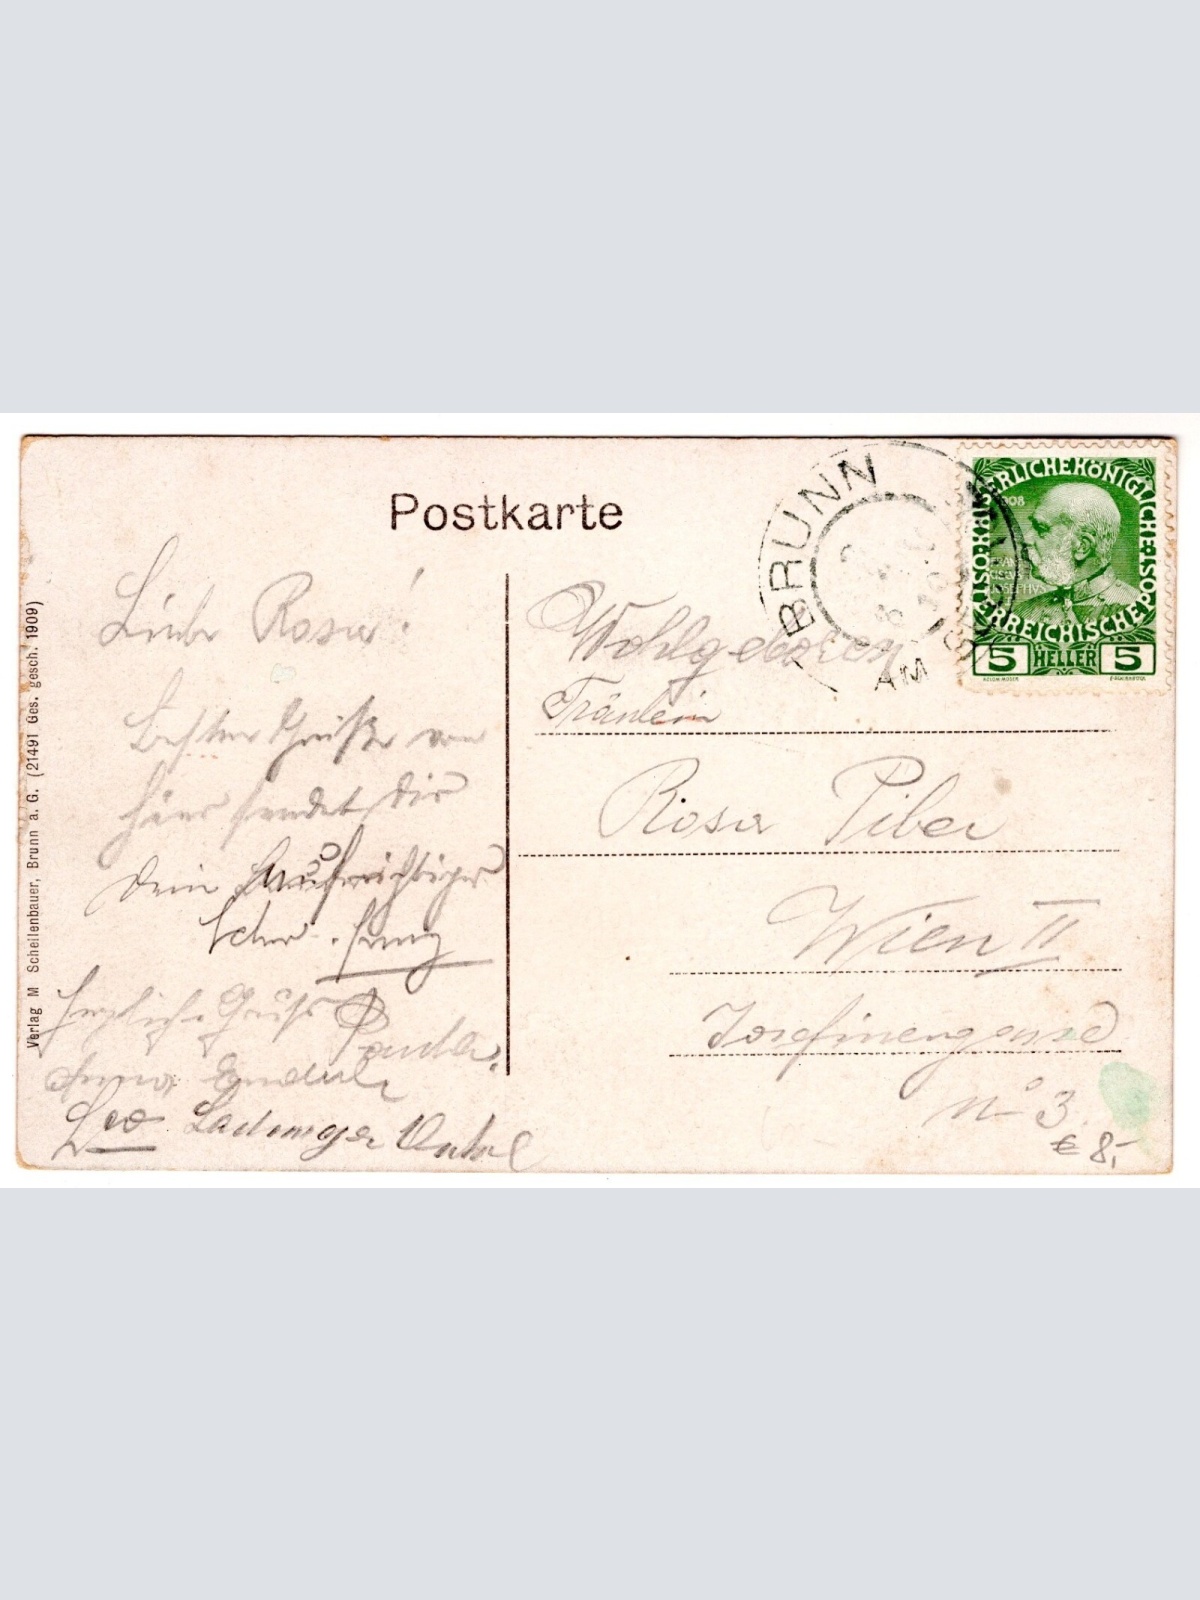 Postkarte
BRUNN AM
KAISERLICHE KÖNIGLICHE ÖSTERREICHISCHE POST
1908
5 HELLER 5
Verlag M Scheilenbauer, Brunn a. G. (21491 Ges. gesch. 1909)
Liebe Rosa!
Besten Grüße von
hier sendet dir
dein aufrichtiger
Herzliche Grüße Paula
Anna
Leo
Wohlgeboren
Fräulein
Rosa Piber
Wien II
Josefinengasse
No 3
€ 8,-